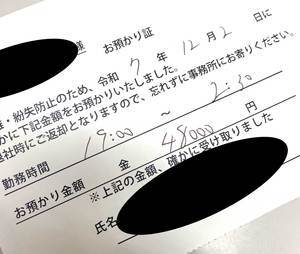 様 お預かり証
・紛失防止のため、令和 7 年 12 月 2 日に
かに下記金額をお預かりいたしました。
社時にご返却となりますので、忘れずに事務所にお寄りください。
勤務時間 19:00 ～ 2:30
お預かり金額 金 49000 円
※上記の金額、確かに受け取りました
氏名